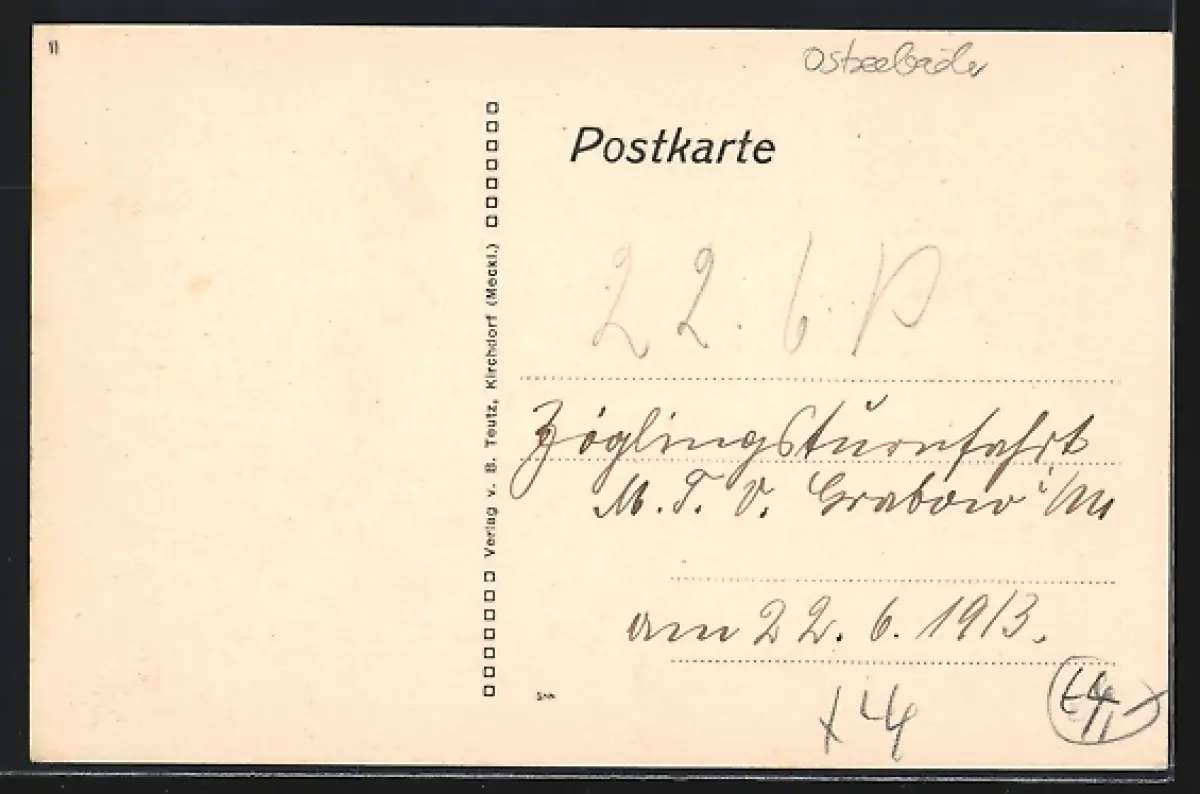 Ostseebäder
Postkarte
22. 6. P
Verlag v. B. Teutz, Kirchdorf (Meckl.)
Zöglingsturnfahrt
M. T. V. Grabow i/M
am 22. 6. 1913.